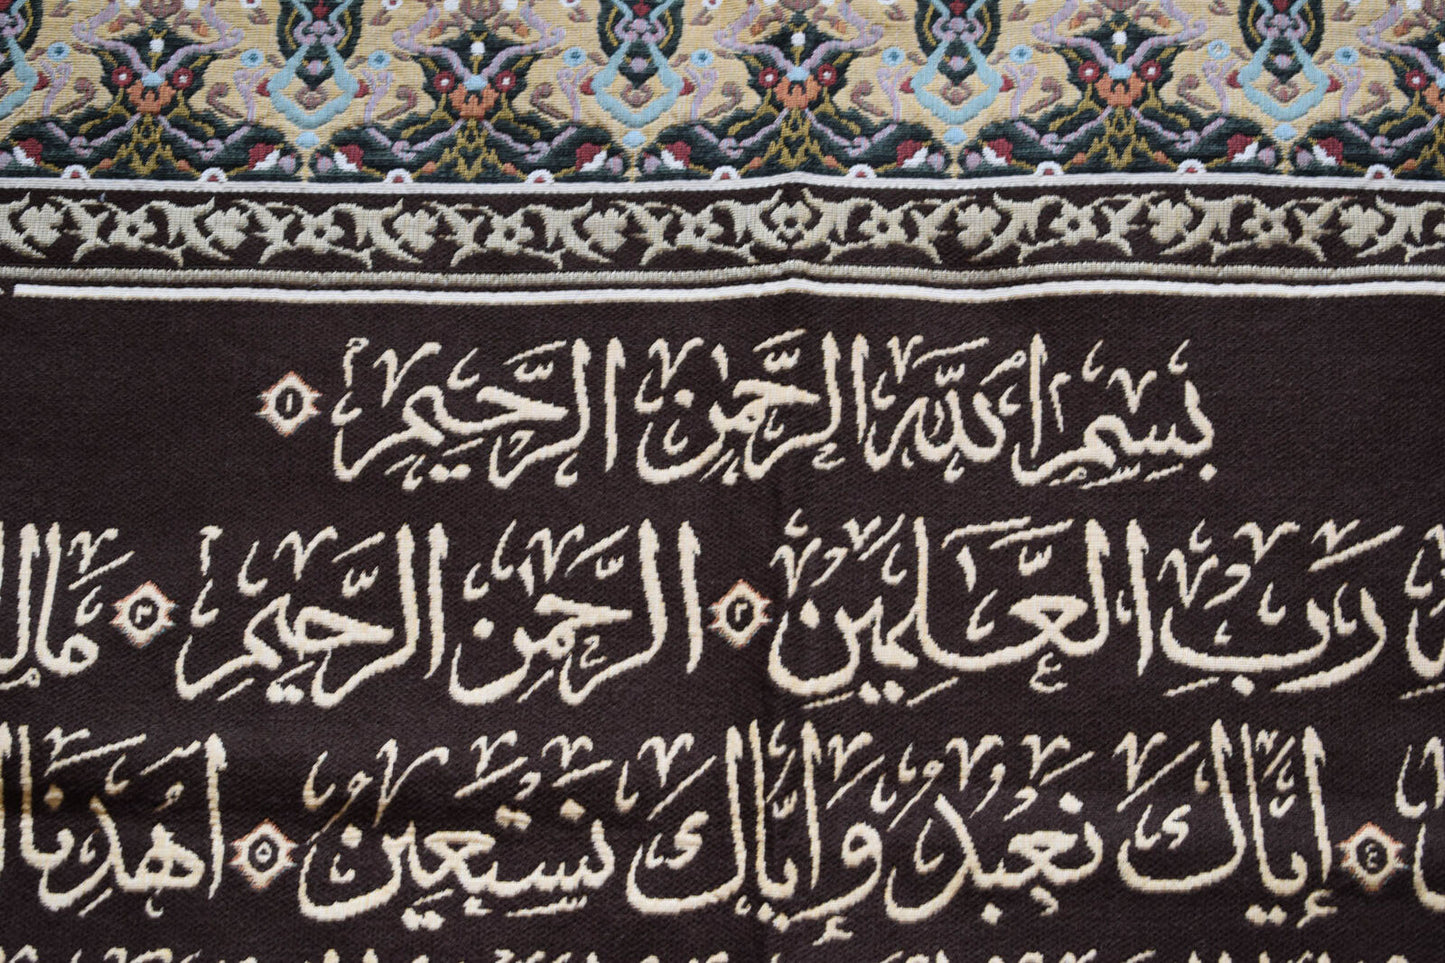 بِسْمِ اللّٰهِ الرَّحْمٰنِ الرَّحِيمِ ١
رَبِّ الْعٰلَمِينَ ٢ الرَّحْمٰنِ الرَّحِيمِ ٣
٤ إِيَّاكَ نَعْبُدُ وَإِيَّاكَ نَسْتَعِينُ ٥ اهْدِنَا